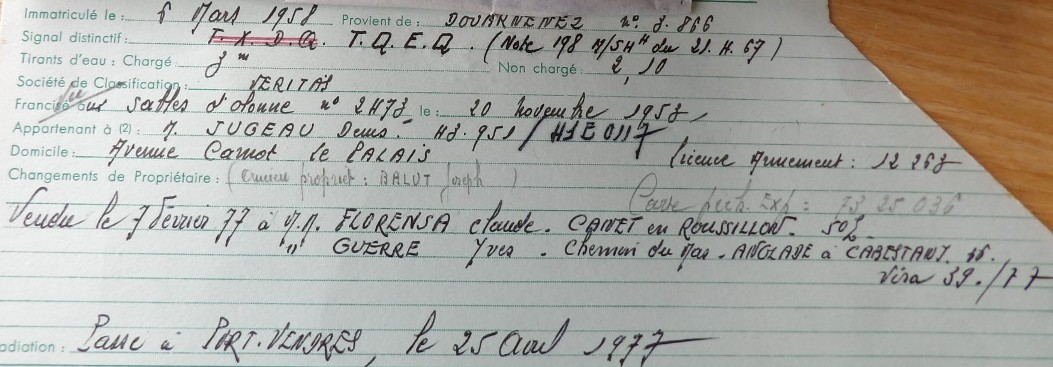 Immatriculé le : 6 Mars 1958 Provient de : DOUARNENEZ n°. 3.866
Signal distinctif : T. X. D. Q. T. Q. E. Q. (Note 198 M/SHH du 21. H. 67)
Tirants d'eau : Chargé : 3 m Non chargé : 2,10
Société de Classification : VERITAS
Francisé aux Sables d'olonne n° 2473, le : 20 novembre 1953,
Appartenant à (2) : M. JUGEAU Denis. H3.951 / H1E0117
Domicile : Avenue Carnot le PALAIS licence Armement : 12 263
Changements de Propriétaire : (Ancien propriét : BALUT Joseph) Carte pech. Exp : 73 25 036
Vendu le 7 Février 77 à M.M. FLORENSA claude. CANET en ROUSSILLON. 50%.
" GUERRE Yves. Chemin du Mas. ANGLADE à CABESTANY.
Visa 39./77
adiation : Passé à PORT-VENDRES, le 25 Avril 1977